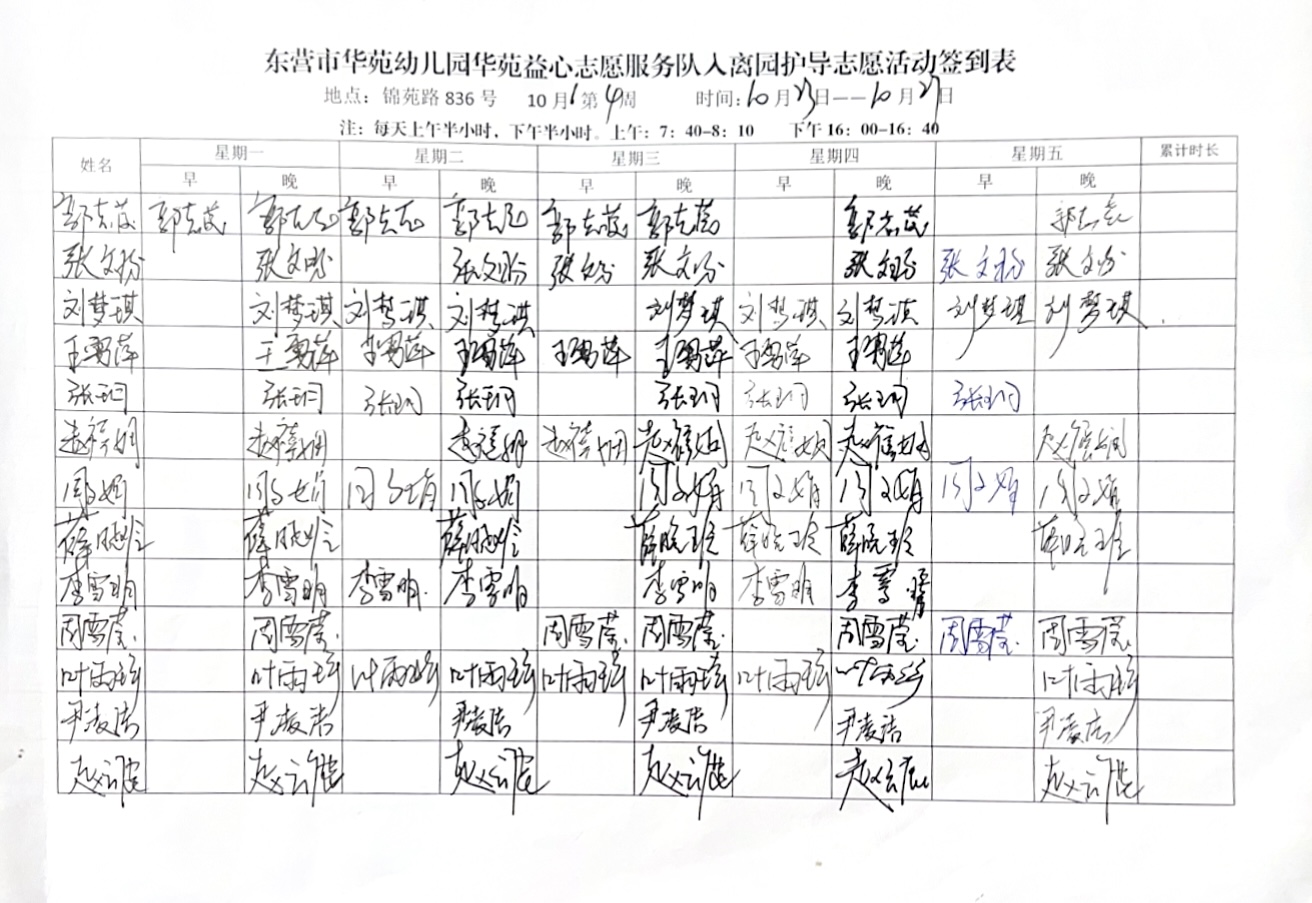 东营市华苑幼儿园华苑益心志愿服务队入离园护导志愿活动签到表
地点：锦苑路 836 号 10 月 第 4 周 时间：10 月 23 日——10 月 27 日
注：每天上午半小时，下午半小时。上午：7：40-8：10 下午 16：00-16：40
姓名 星期一 星期二 星期三 星期四 星期五 累计时长
早 晚 早 晚 早 晚 早 晚 早 晚
郭志茂 郭志茂 郭志茂 郭志茂 郭志茂 郭志茂 郭志茂 郭志茂 郭志茂
张文玢 张文玢 张文玢 张文玢 张文玢 张文玢 张文玢 张文玢
刘梦琪 刘梦琪 刘梦琪 刘梦琪 刘梦琪 刘梦琪 刘梦琪 刘梦琪 刘梦琪
王雪萍 王雪萍 王雪萍 王雪萍 王雪萍 王雪萍 王雪萍 王雪萍
张玥 张玥 张玥 张玥 张玥 张玥 张玥 张玥
赵 赵 赵 赵 赵 赵 赵 赵
周文娟 周文娟 周文娟 周文娟 周文娟 周文娟 周文娟 周文娟 周文娟
薛晓玲 薛晓玲 薛晓玲 薛晓玲 薛晓玲 薛晓玲 薛晓玲
李雪明 李雪明 李雪明 李雪明 李雪明 李雪明 李
周雪莹 周雪莹 周雪莹 周雪莹 周雪莹 周雪莹 周雪莹
叶雨 叶雨 叶雨 叶雨 叶雨 叶雨 叶雨 叶雨 叶雨
尹凌洁 尹凌洁 尹凌洁 尹凌洁 尹凌洁 尹凌洁
赵云 赵云 赵云 赵云 赵云 赵云